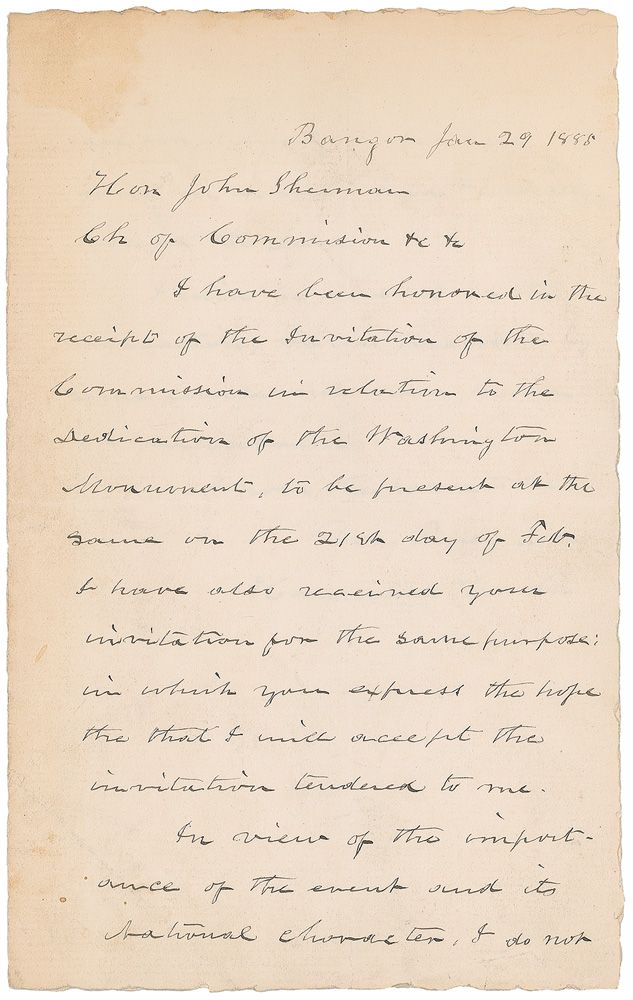 Bangor Jan 29 1885
Hon John Sherman
Ch of Commission &c &c
I have been honored in the
receipt of the Invitation of the
Commission in relation to the
Dedication of the Washington
Monument, to be present at the
same on the 21st day of Feb.
I have also received your
invitation for the same purpose;
in which you express the hope
the that I will accept the
invitation tendered to me.
In view of the import-
ance of the event and its
National character, I do not